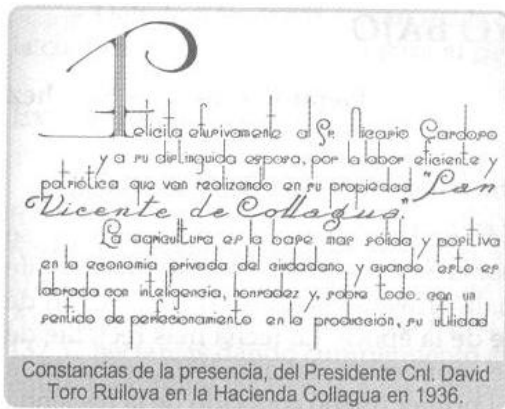 Felicita efusivamente al Sr. Nicasio Cardoso
y a su distinguida esposa, por la labor eficiente y
patriótica que van realizando en su propiedad "San
Vicente de Collagua."
La agricultura es la base mas sólida y positiva
en la economía privada del ciudadano y cuando esto es
labrada con inteligencia, honradez y, sobre todo, con un
sentido de perfeccionamiento en la producción, su utilidad
Constancias de la presencia, del Presidente Cnl. David
Toro Ruilova en la Hacienda Collagua en 1936.